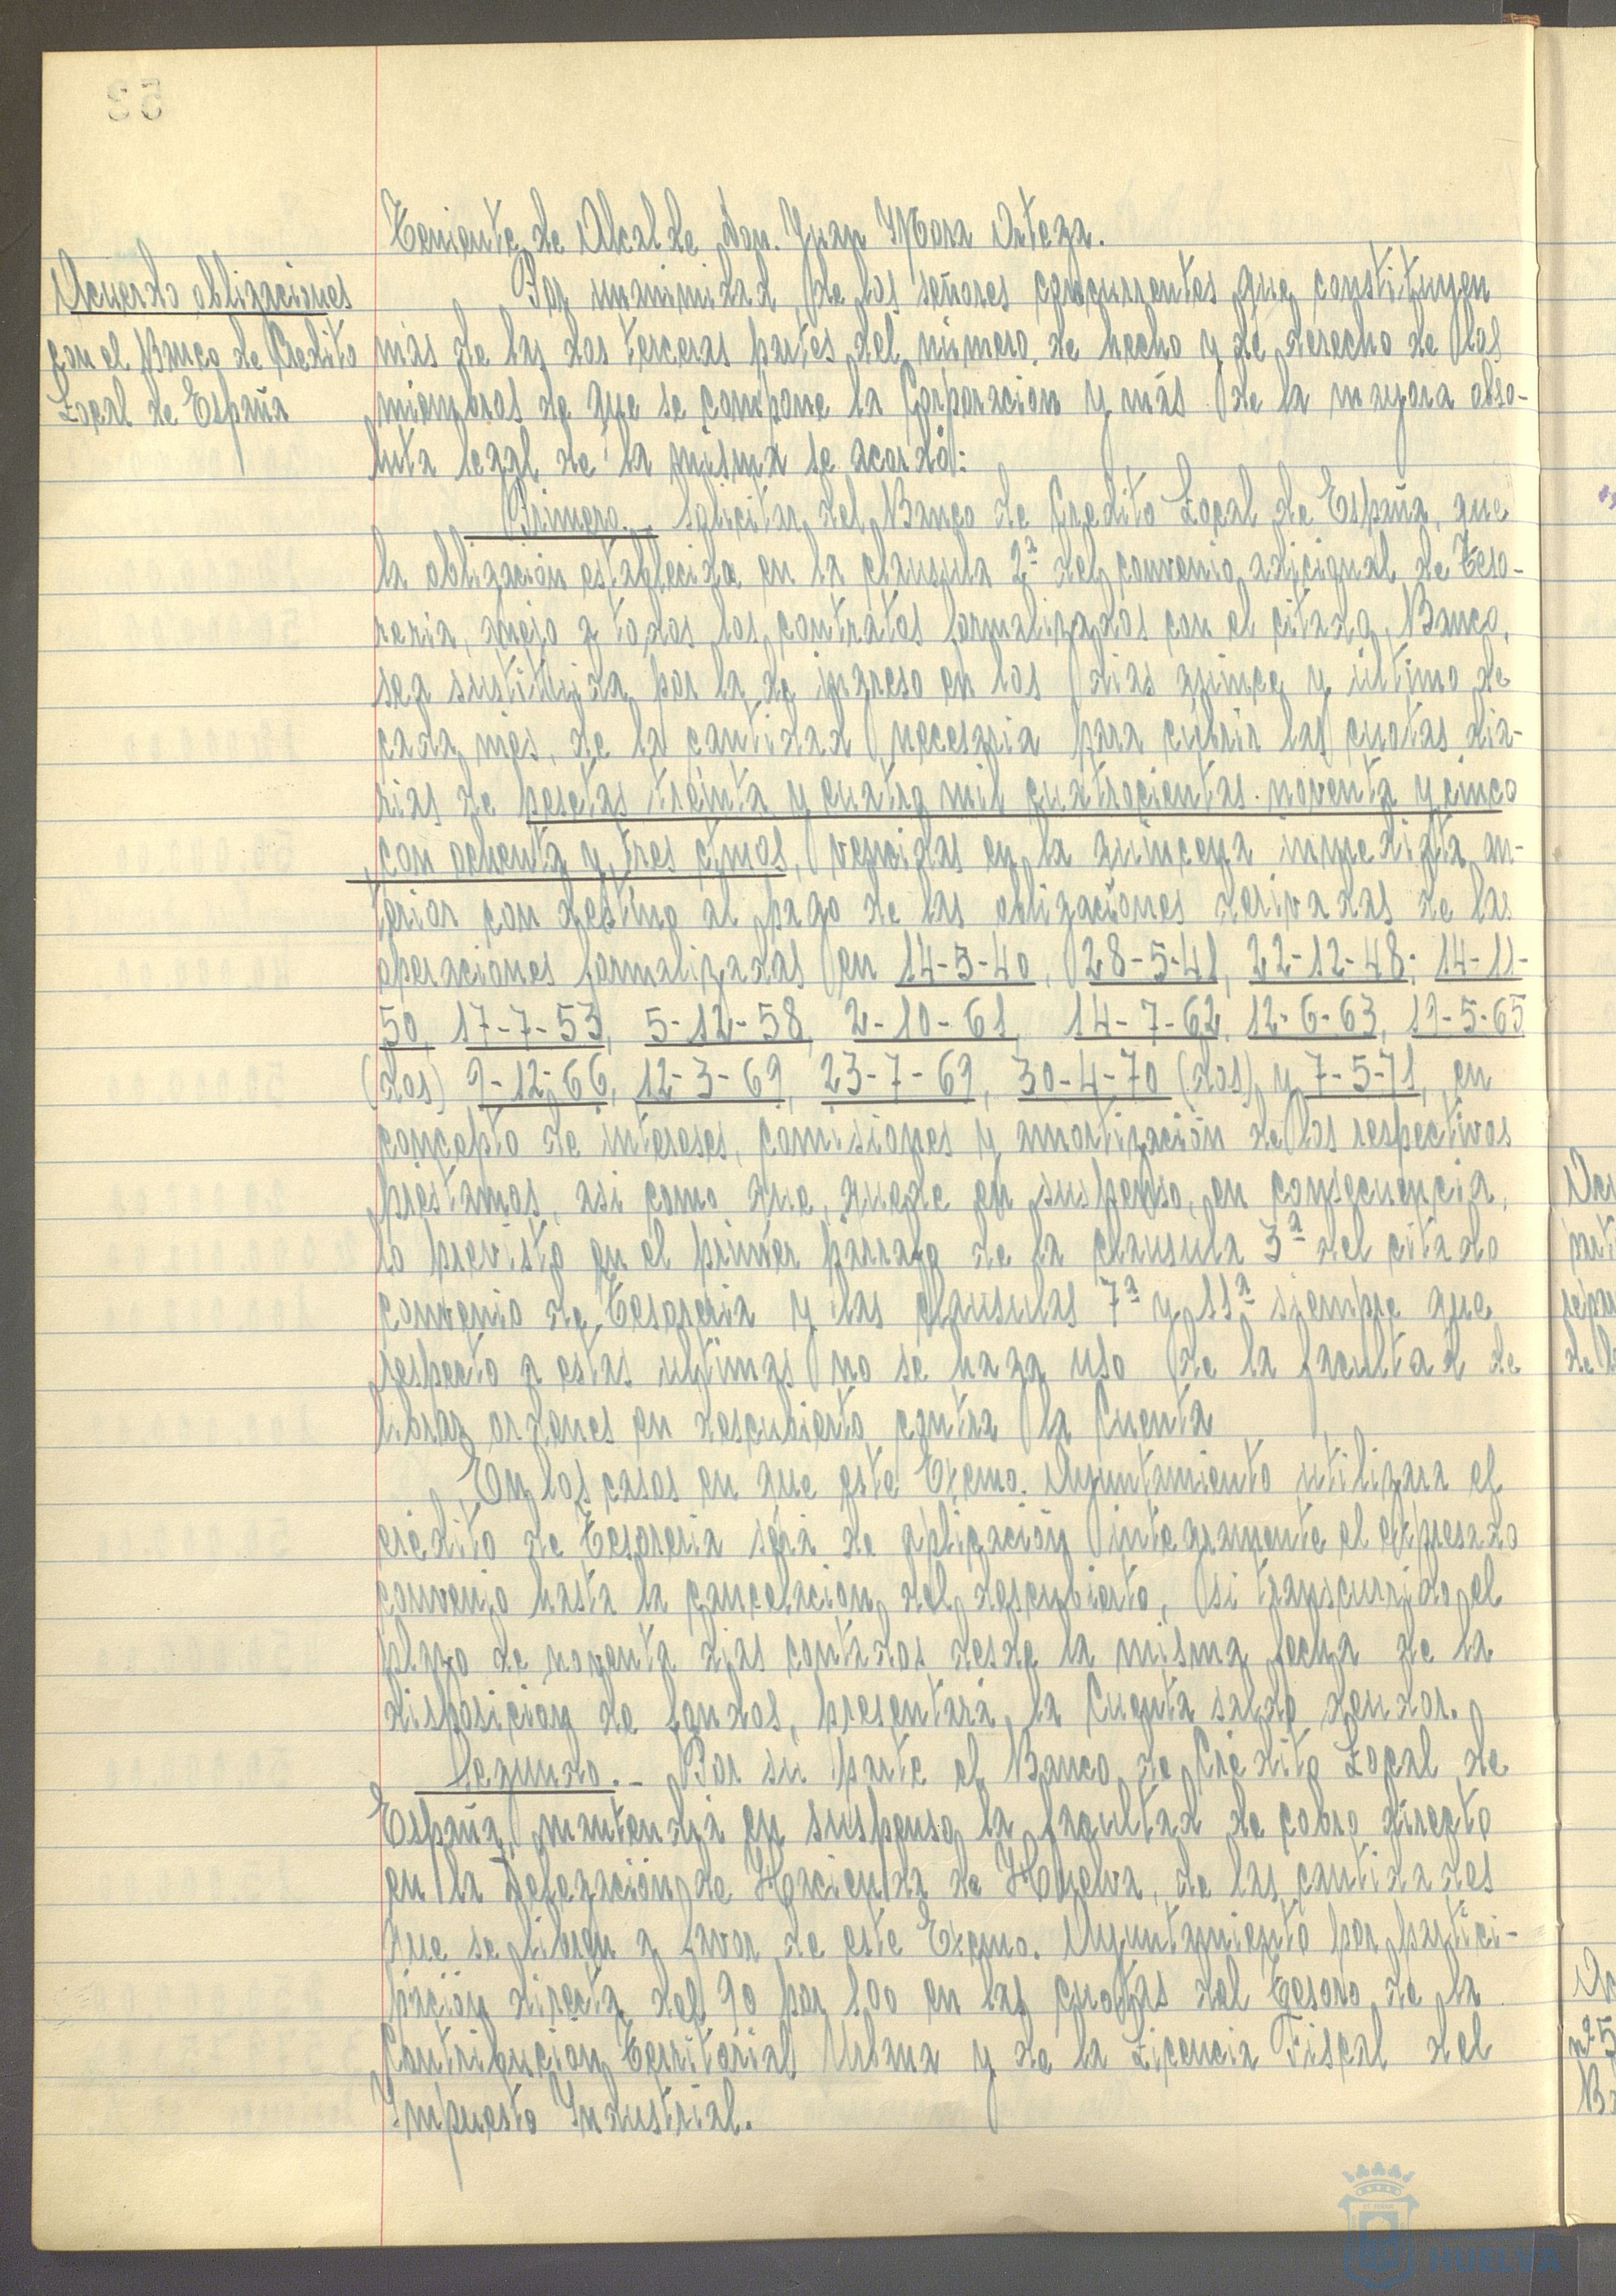 53
Teniente de Alcalde Don Juan Mora Ortega.
Acuerdo obligaciones
con el Banco de Credito
Local de España
Por unanimidad de los señores concurrentes que constituyen
más de las dos terceras partes del número de hecho y de derecho de los
miembros de que se compone la Corporación y más de la mayoria abso-
luta legal de la misma se acordó:
Primero.- Solicitar del Banco de Credito Local de España, que
la obligación establecida en la clausula 2ª del convenio adicional de Teso-
reria, anejo a todos los contratos formalizados con el citado Banco,
sea sustituida por la de ingreso en los dias quince y último de
cada mes, de la cantidad necesaria para cubrir las cuotas dia-
rias de pesetas treinta y cuatro mil cuatrocientas noventa y cinco
con ochenta y tres ctmos, vencidas en la quincena inmediata an-
terior con destino al pago de las obligaciones derivadas de las
operaciones formalizadas en 14-5-40, 28-5-41, 22-12-48; 14-11-
50, 17-7-53, 5-12-58, 2-10-61, 14-7-62, 12-6-63, 19-5-65
(dos) 9-12-66, 12-3-69, 23-7-69, 30-4-70 (dos) y 7-5-71, en
concepto de intereses, comisiones y amortización de los respectivos
préstamos, asi como que, quede en suspenso, en consecuencia,
lo previsto en el primer párrafo de la clausula 3ª del citado
convenio de Tesoreria y las clausulas 7ª y 11ª siempre que
respecto a estas ultimas no se haga uso de la facultad de
librar ordenes en descubierto contra la Cuenta
En los casos en que este Excmo. Ayuntamiento utilizara el
crédito de Tesoreria será de aplicación integramente el expresado
convenio hasta la cancelación del descubierto, si transcurrido el
plazo de noventa dias contados desde la misma fecha de la
disposicion de fondos, presentará la Cuenta saldo deudor.
Segundo.- Por su parte el Banco de Crédito Local de
España, mantendrá en suspenso la facultad de cobro directo
en la Delegación de Hacienda de Huelva, de las cantidades
que se libren a favor de este Excmo. Ayuntamiento por partici-
pación directa del 90 por 100 en las cuotas del Tesoro de la
Contribucion Territorial Urbana y de la Licencia Fiscal del
Impuesto Industrial.
HUELVA